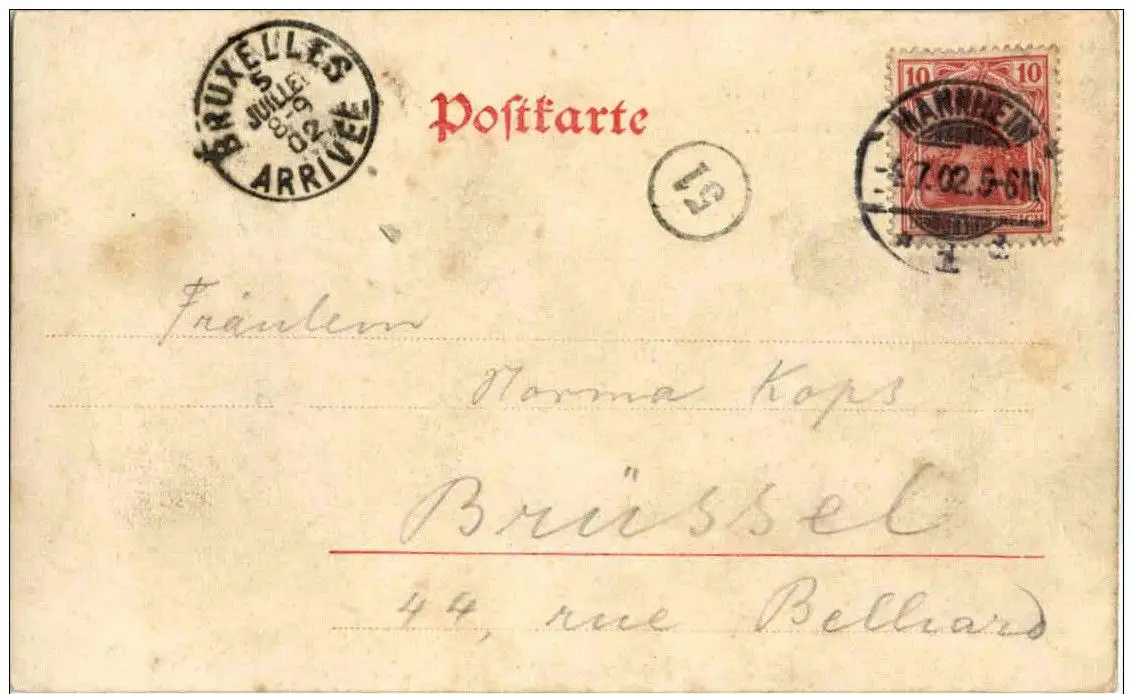 BRUXELLES
5
JUILLET
8-9
02
ARRIVÉE
Postkarte
51
10 10
MANNHEIM
7.02.5-6N
* 1 *
Fräulein
Norma Kops
Brüssel
44, rue Belliard